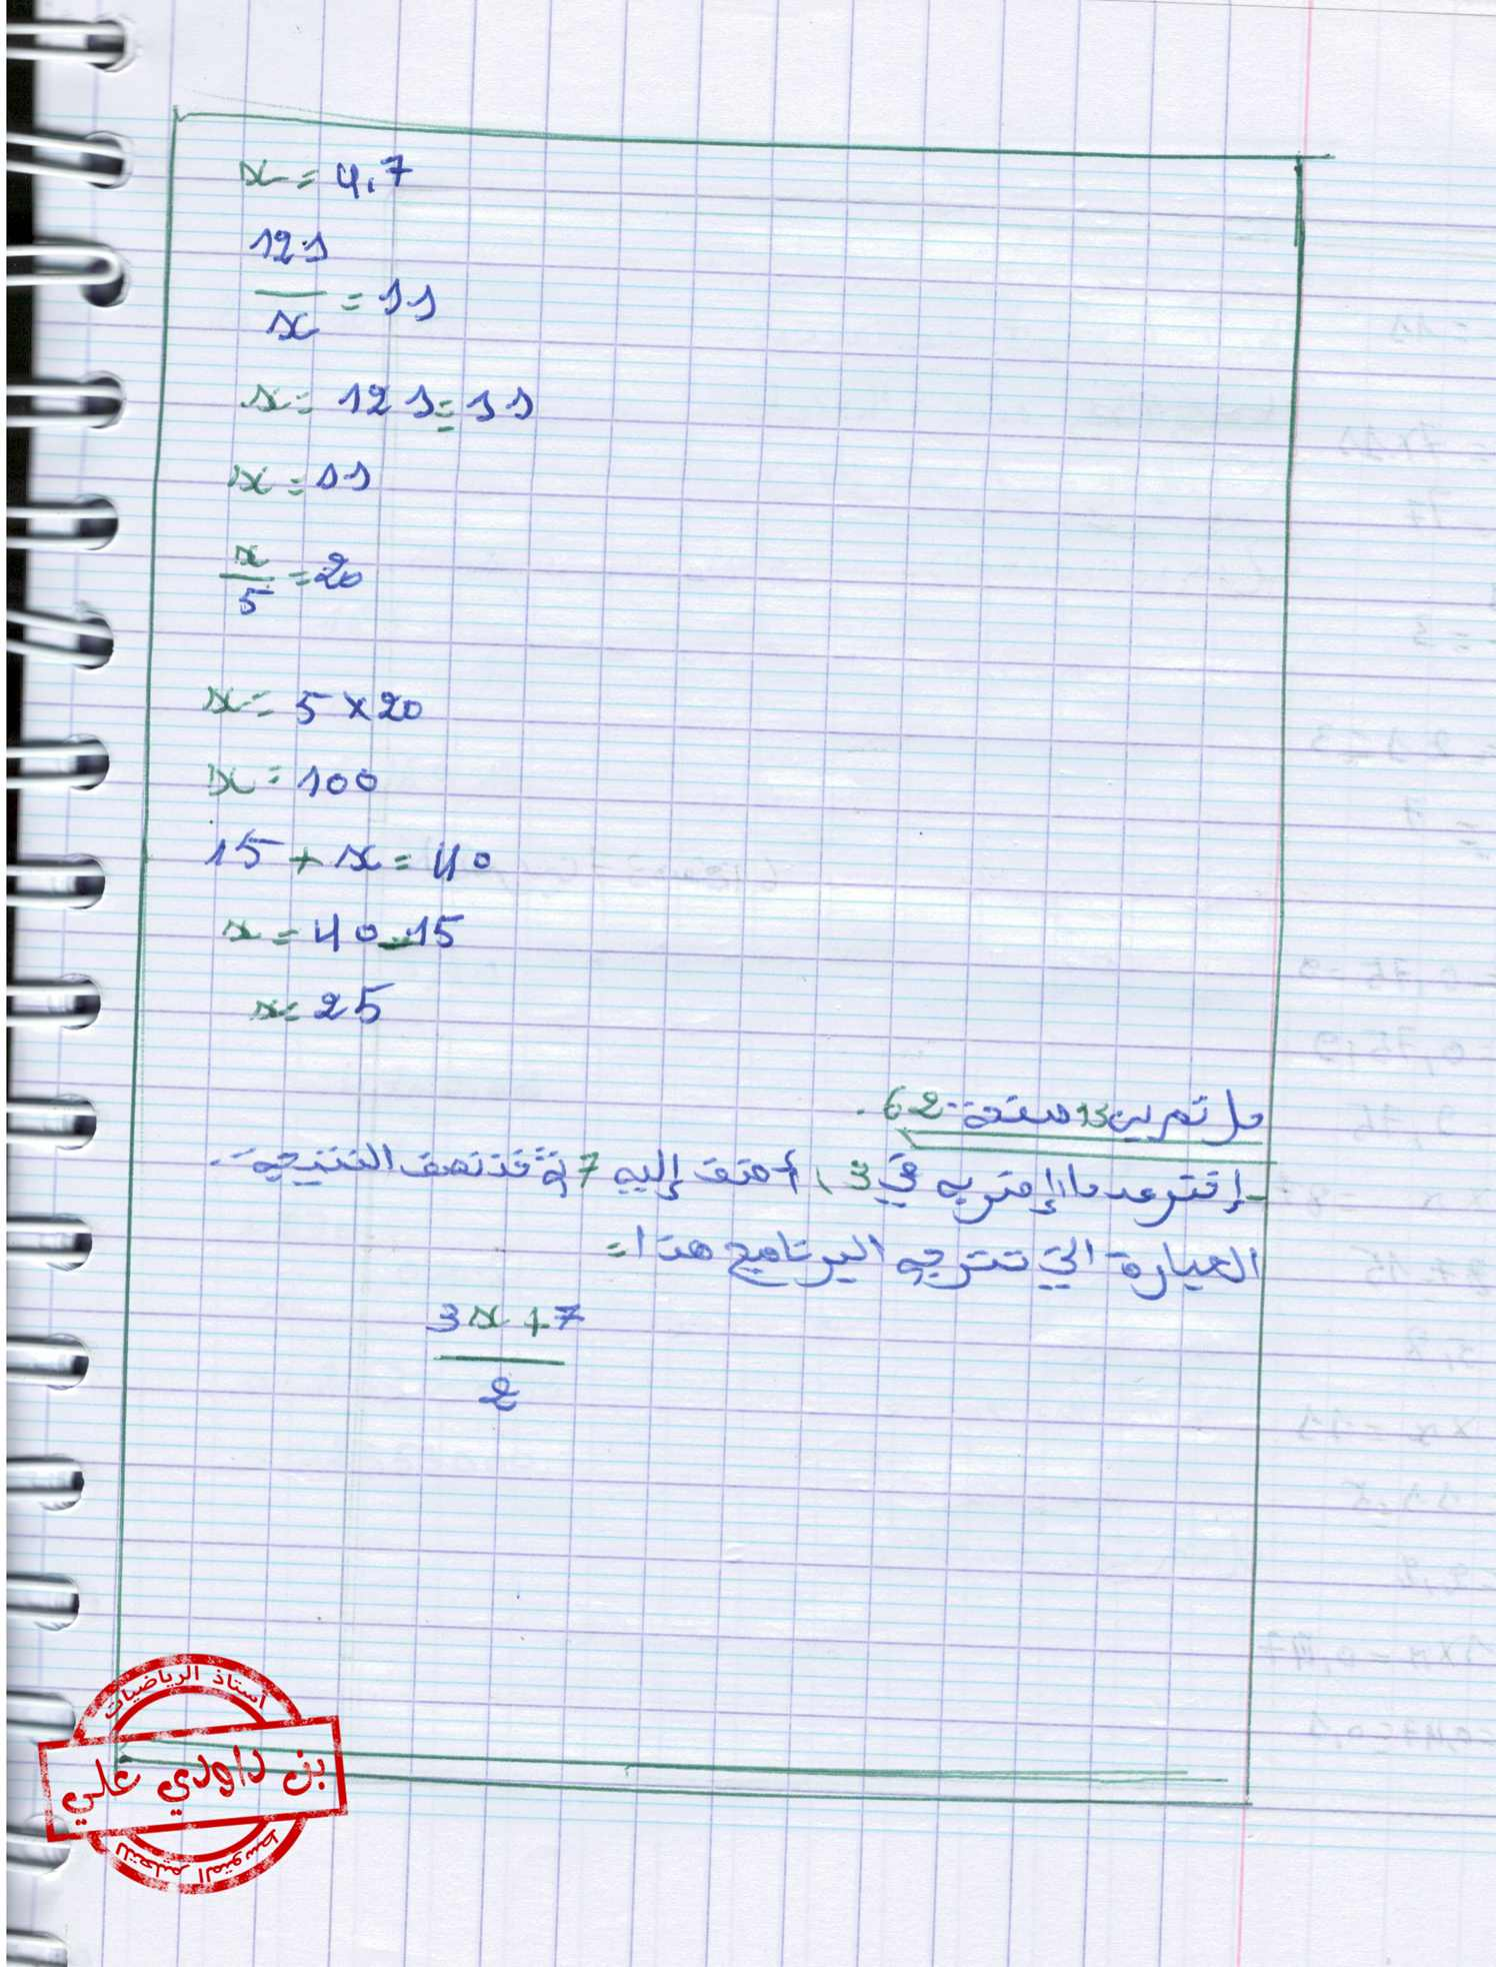 x = 4,7
121
— = 11
x
x = 121 = 11
x = 11
x
— = 20
5
x = 5 × 20
x = 100
15 + x = 40
x = 40 - 15
x = 25
حل تمرين 13 صفحة 62.
- إختر عددا، إضربه في 3، أضف إليه 7 ثم خذ نصف النتيجة.
العبارة التي تترجم البرنامج هذا =
3x + 7
—
2
أستاذ الرياضيات
بن داودي علي
للتعليم المتوسط